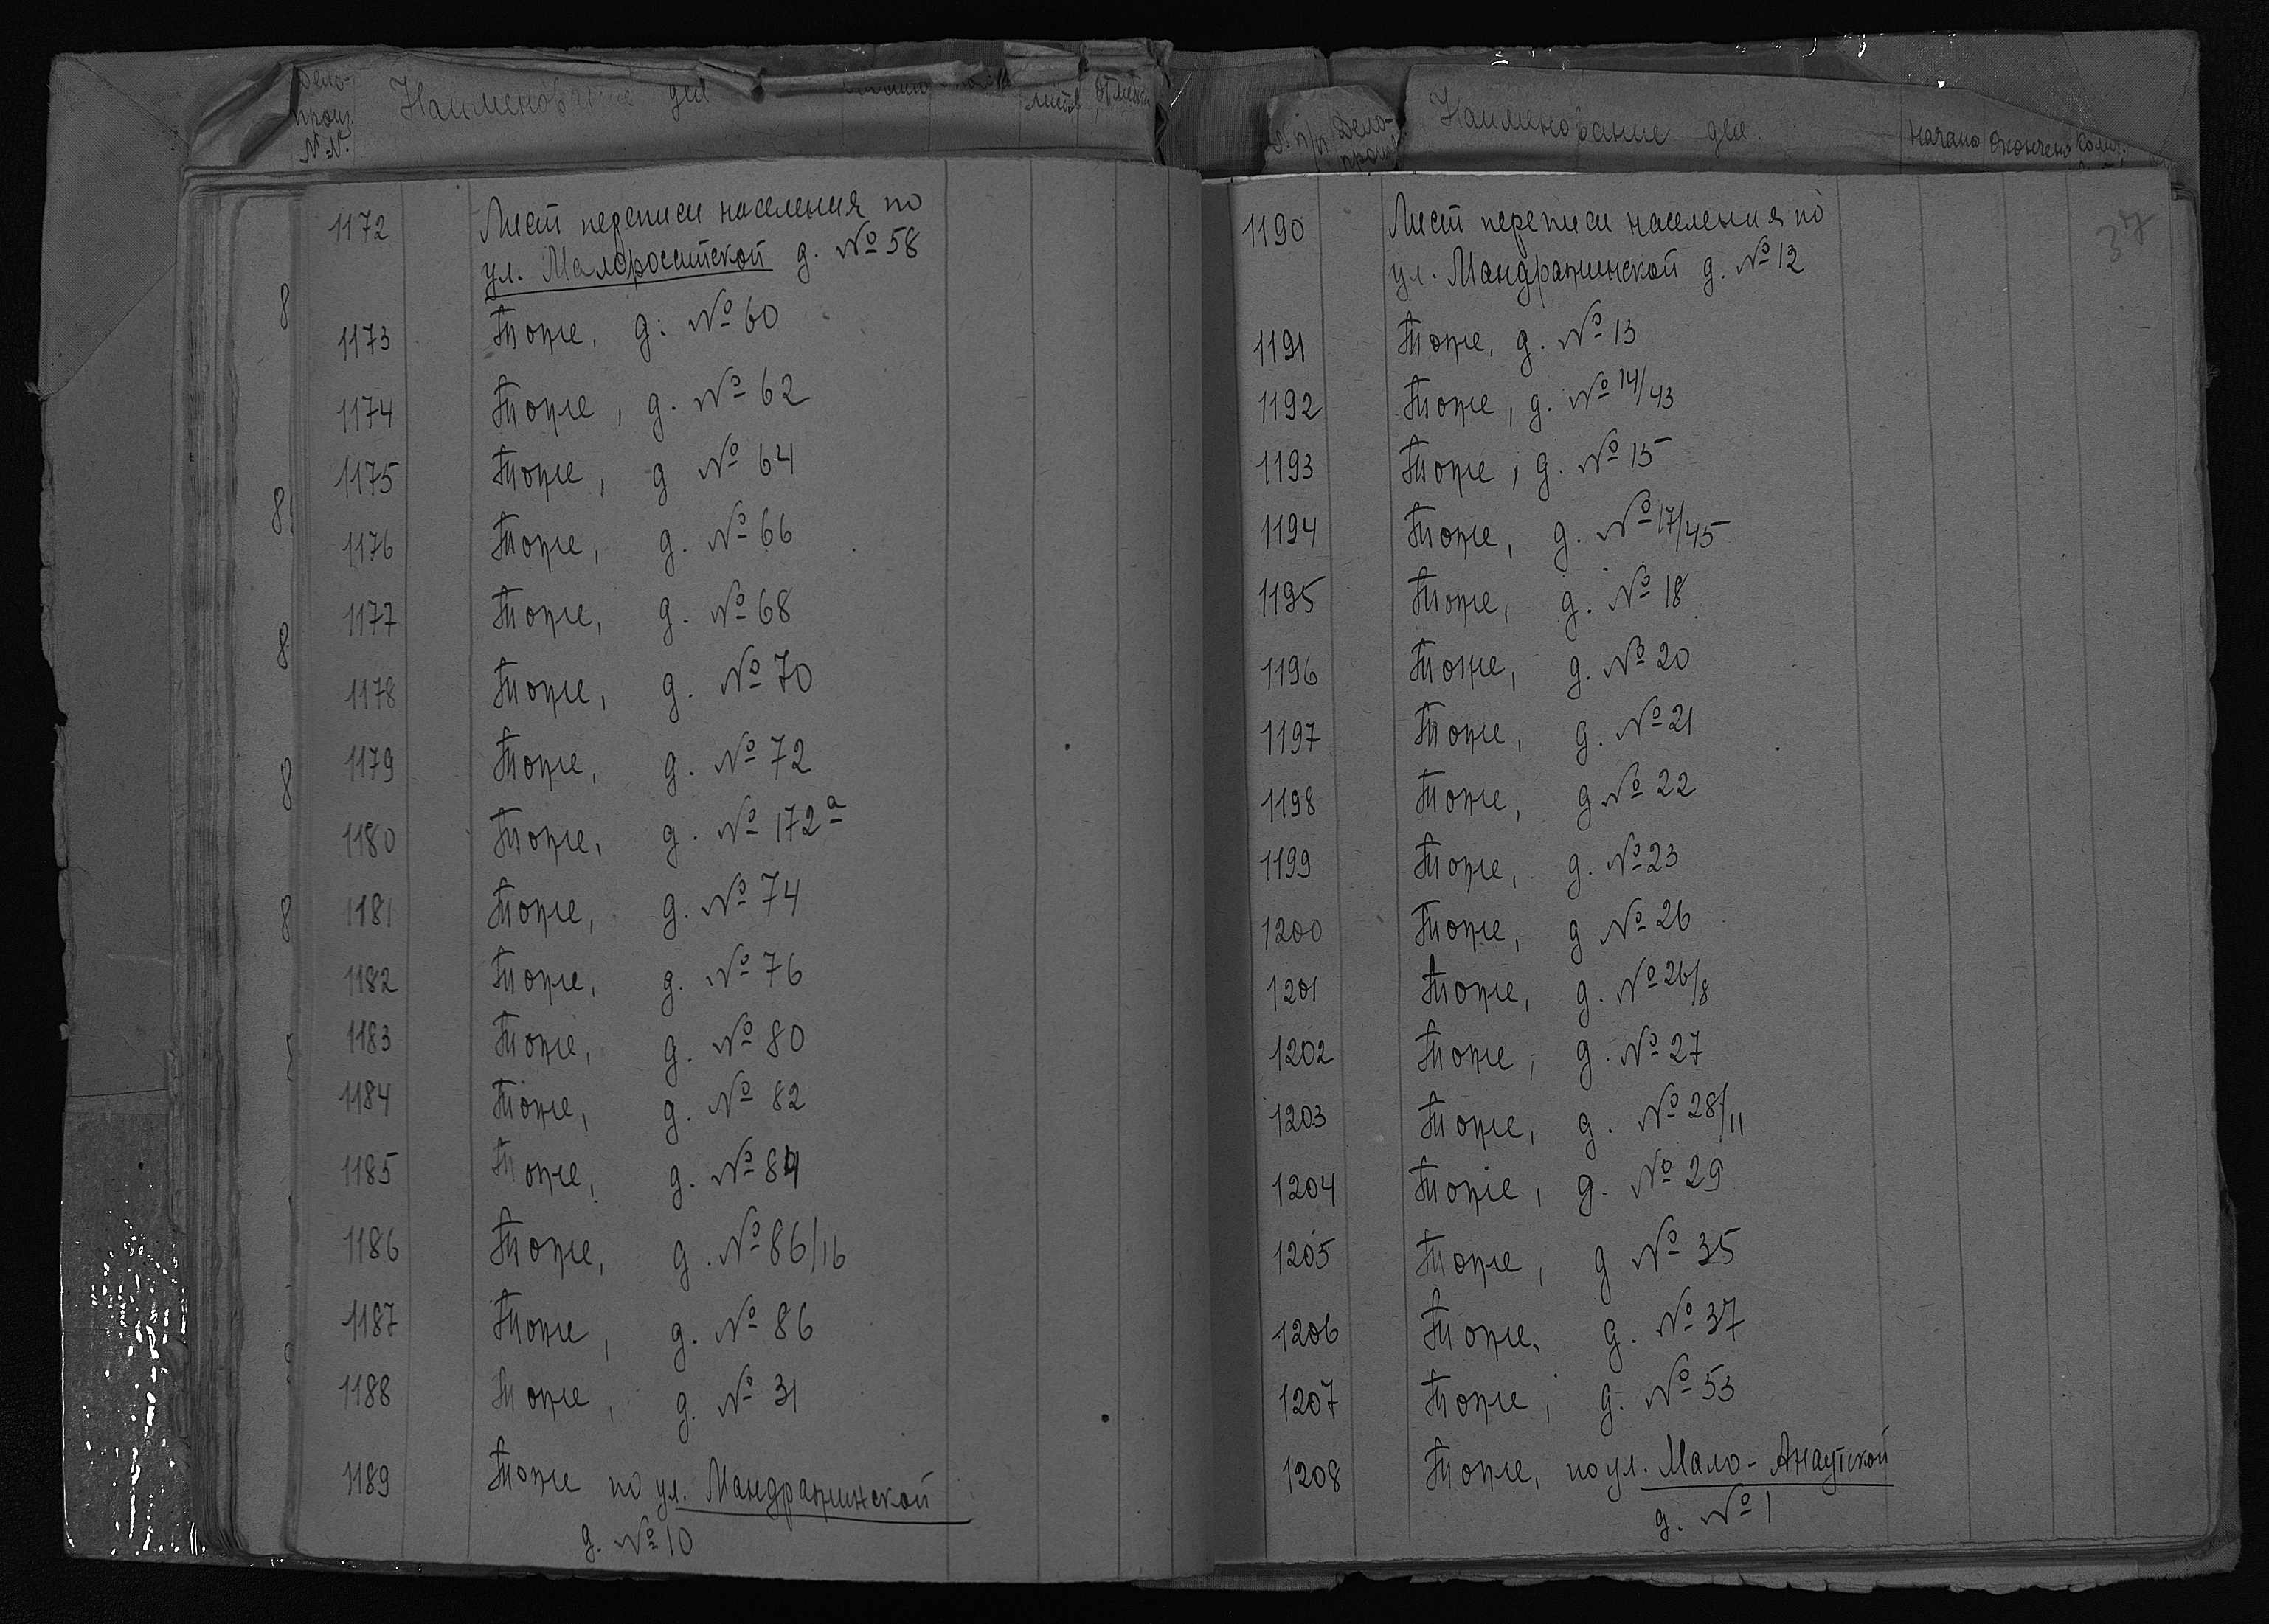 Дело-
произ.
№№.
Наименование дел
листов
Отметка
1172 Лист переписи населения по
ул. Малороситской д. № 58
1173 Тоже, д. № 60
1174 Тоже, д. № 62
1175 Тоже, д № 64
1176 Тоже, д. № 66
1177 Тоже, д. № 68
1178 Тоже, д. № 70
1179 Тоже, д. № 72
1180 Тоже, д. № 172а
1181 Тоже, д. № 74
1182 Тоже, д. № 76
1183 Тоже, д. № 80
1184 Тоже, д. № 82
1185 Тоже, д. № 84
1186 Тоже, д. № 86/16
1187 Тоже, д. № 86
1188 Тоже, д. № 31
1189 Тоже по ул. Мандражинской
д. № 10
п/п
Дело-
произ
Наименование дел.
Начато Окончено Колич.
37
1190 Лист переписи населения по
ул. Мандражинской д. № 12
1191 Тоже, д. № 13
1192 Тоже, д. № 14/43
1193 Тоже, д. № 15
1194 Тоже, д. № 17/45
1195 Тоже, д. № 18
1196 Тоже, д. № 20
1197 Тоже, д. № 21
1198 Тоже, д № 22
1199 Тоже, д. № 23
1200 Тоже, д № 26
1201 Тоже, д. № 26/8
1202 Тоже, д. № 27
1203 Тоже, д. № 28/11
1204 Тоже, д. № 29
1205 Тоже, д № 35
1206 Тоже, д. № 37
1207 Тоже, д. № 53
1208 Тоже, по ул. Мало-Анаутской
д. № 1